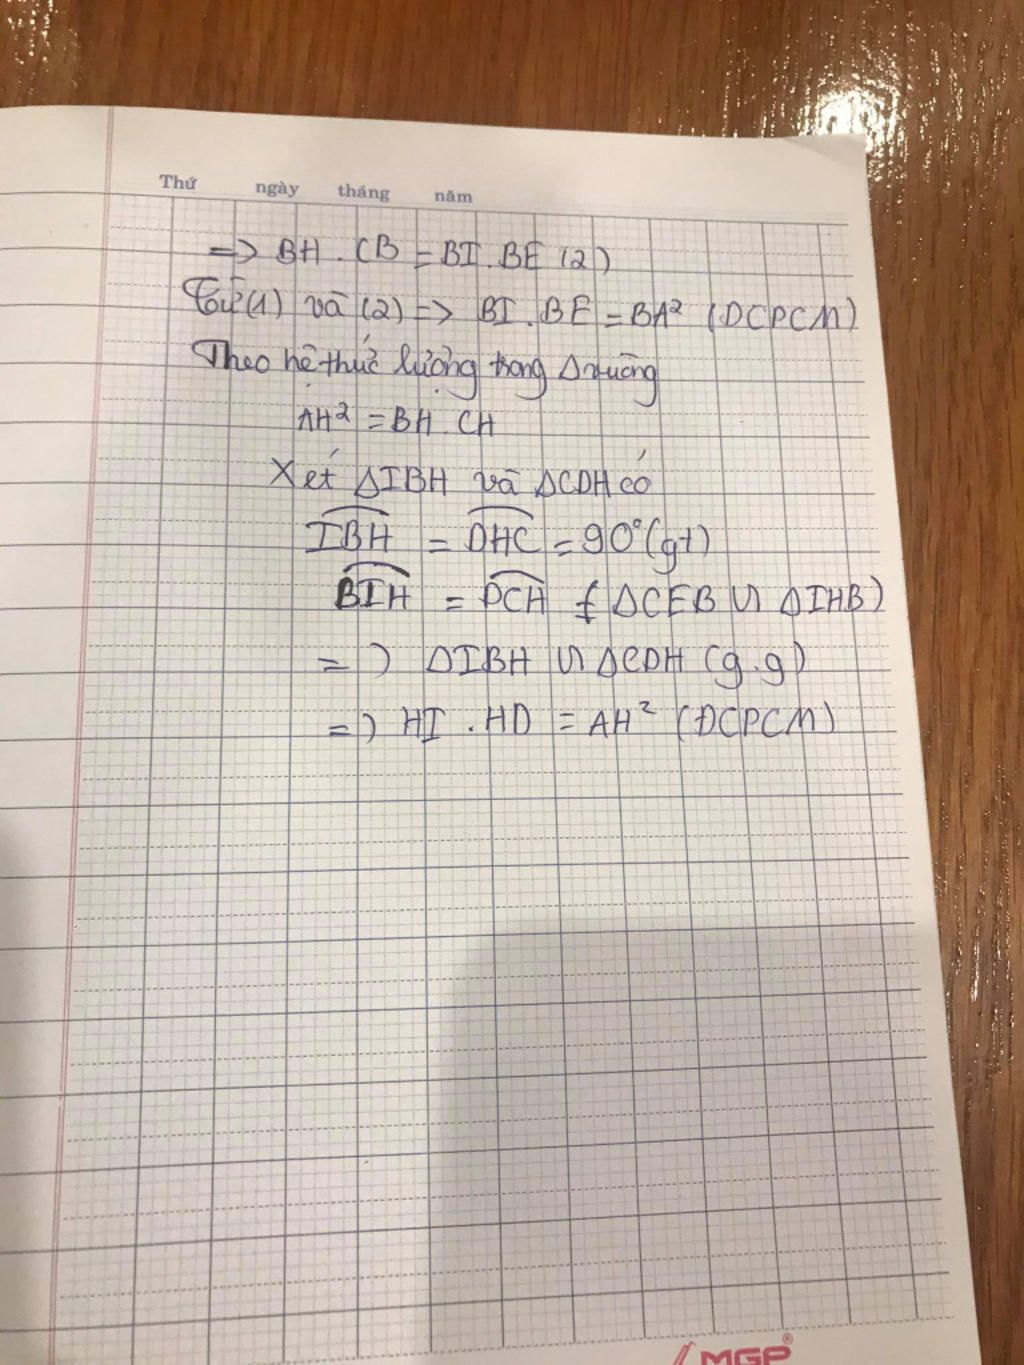 Thứ ngày tháng năm
=> BH . CB = BI . BE (2)
Từ (1) và (2) => BI . BE = BA² (ĐCPCM)
Theo hệ thức lượng trong Δ vuông
AH² = BH . CH
Xét ΔIBH và ΔCDH có
IBH = DHC = 90° (gt)
BIH = DCH ( ΔCEB ∽ ΔIHB)
=> ΔIBH ∽ ΔCDH (g.g)
=> HI . HD = AH² (ĐCPCM)
MGP®